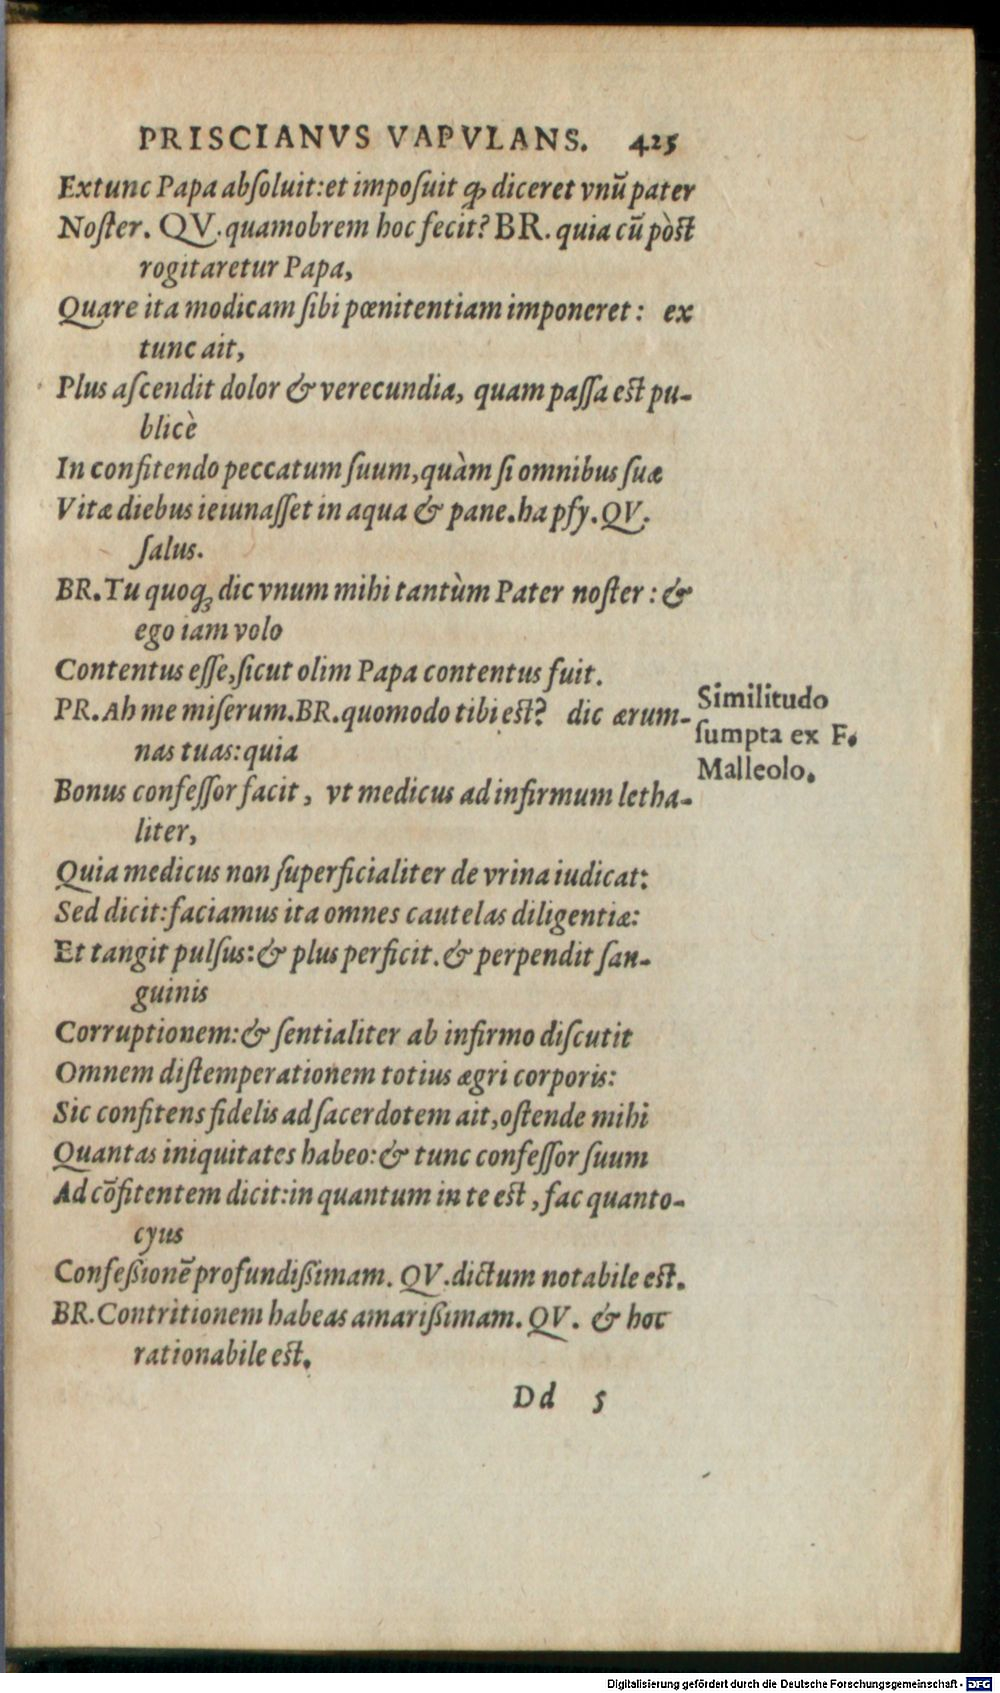 PRISCIANVS VAPVLANS. 425
Extunc Papa abſoluit: et impoſuit ꝙ diceret vnũ pater
Noſter. QV. quamobrem hoc fecit? BR. quia cũ pòst
rogitaretur Papa,
Quare ita modicam ſibi pœnitentiam imponeret: ex
tunc ait,
Plus aſcendit dolor & verecundia, quam paſſa est pu-
blicè
In confitendo peccatum ſuum, quàm ſi omnibus ſuæ
Vitæ diebus ieiunaſſet in aqua & pane. ha pſy. QV.
ſalus.
BR. Tu quoqꝫ dic vnum mihi tantùm Pater noſter: &
ego iam volo
Contentus eſſe, ſicut olim Papa contentus fuit.
PR. Ah me miſerum. BR. quomodo tibi est? dic ærum-
nas tuas: quia
Similitudo
ſumpta ex F.
Malleolo.
Bonus confeſſor facit, vt medicus ad infirmum letha-
liter,
Quia medicus non ſuperficialiter de vrina iudicat:
Sed dicit: faciamus ita omnes cautelas diligentiæ:
Et tangit pulſus: & plus perficit. & perpendit ſan-
guinis
Corruptionem: & ſentialiter ab infirmo diſcutit
Omnem diſtemperationem totius ægri corporis:
Sic confitens fidelis ad ſacerdotem ait, oſtende mihi
Quantas iniquitates habeo: & tunc confeſſor ſuum
Ad cõfitentem dicit: in quantum in te est, fac quanto-
cyus
Confeßionẽ profundißimam. QV. dictum notabile est.
BR. Contritionem habeas amarißimam. QV. & hoc
rationabile est.
Dd 5
Digitalisierung gefördert durch die Deutsche Forschungsgemeinschaft - DFG